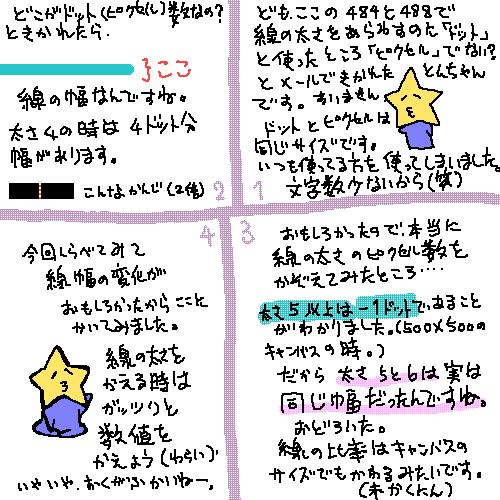 ども、ここの 484と488で
線の太さをあらわすのに「ドット」
と使ったところ「ピクセル」でない?
とメールできかれた とんちゃん
です。すいません
ドットとピクセルは
同じサイズです。
いつも使ってる方を使ってしまいました。
文字数少ないから(笑)
1
どこがドット(ピクセル)数なの?
ときかれたら、
}ここ
線の幅なんですね。
太さ4の時は4ドット分
幅があります。
こんなかんじ(2倍)
2
おもしろかったので、本当に
線の太さのピクセル数を
かぞえてみたところ‥‥
太さ5以上は-1ドットであること
がわかりました。(500×500の
キャンバスの時。)
だから 太さ5と6は実は
同じ幅だったんですね。
おどろいた。
線の比率はキャンバスの
サイズでもかわるみたいです。
(未かくにん)
3
今回しらべてみて
線幅の変化が
おもしろかったからここに
かいてみました。
線の太さを
かえる時は
ガッツリと
数値を
かえよう(わらい)
いやいや、おくがふかいねー。
4